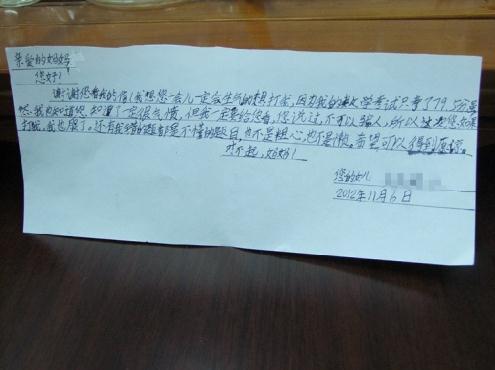 亲爱的妈妈
您好!
谢谢您看我的信!我想您一会儿一定会生气的想打我,因为我的数学考试只考了79。
然我也知道您知道了一定很气愤,但我一定要给您看,您说过,不可以骗人,所以
打我,我也愿了,还有我错的题都是不懂的题目,也不是粗心,也不是懒。希望可以得到原谅。
对不起,妈妈!
您的女儿
2012年11月6日